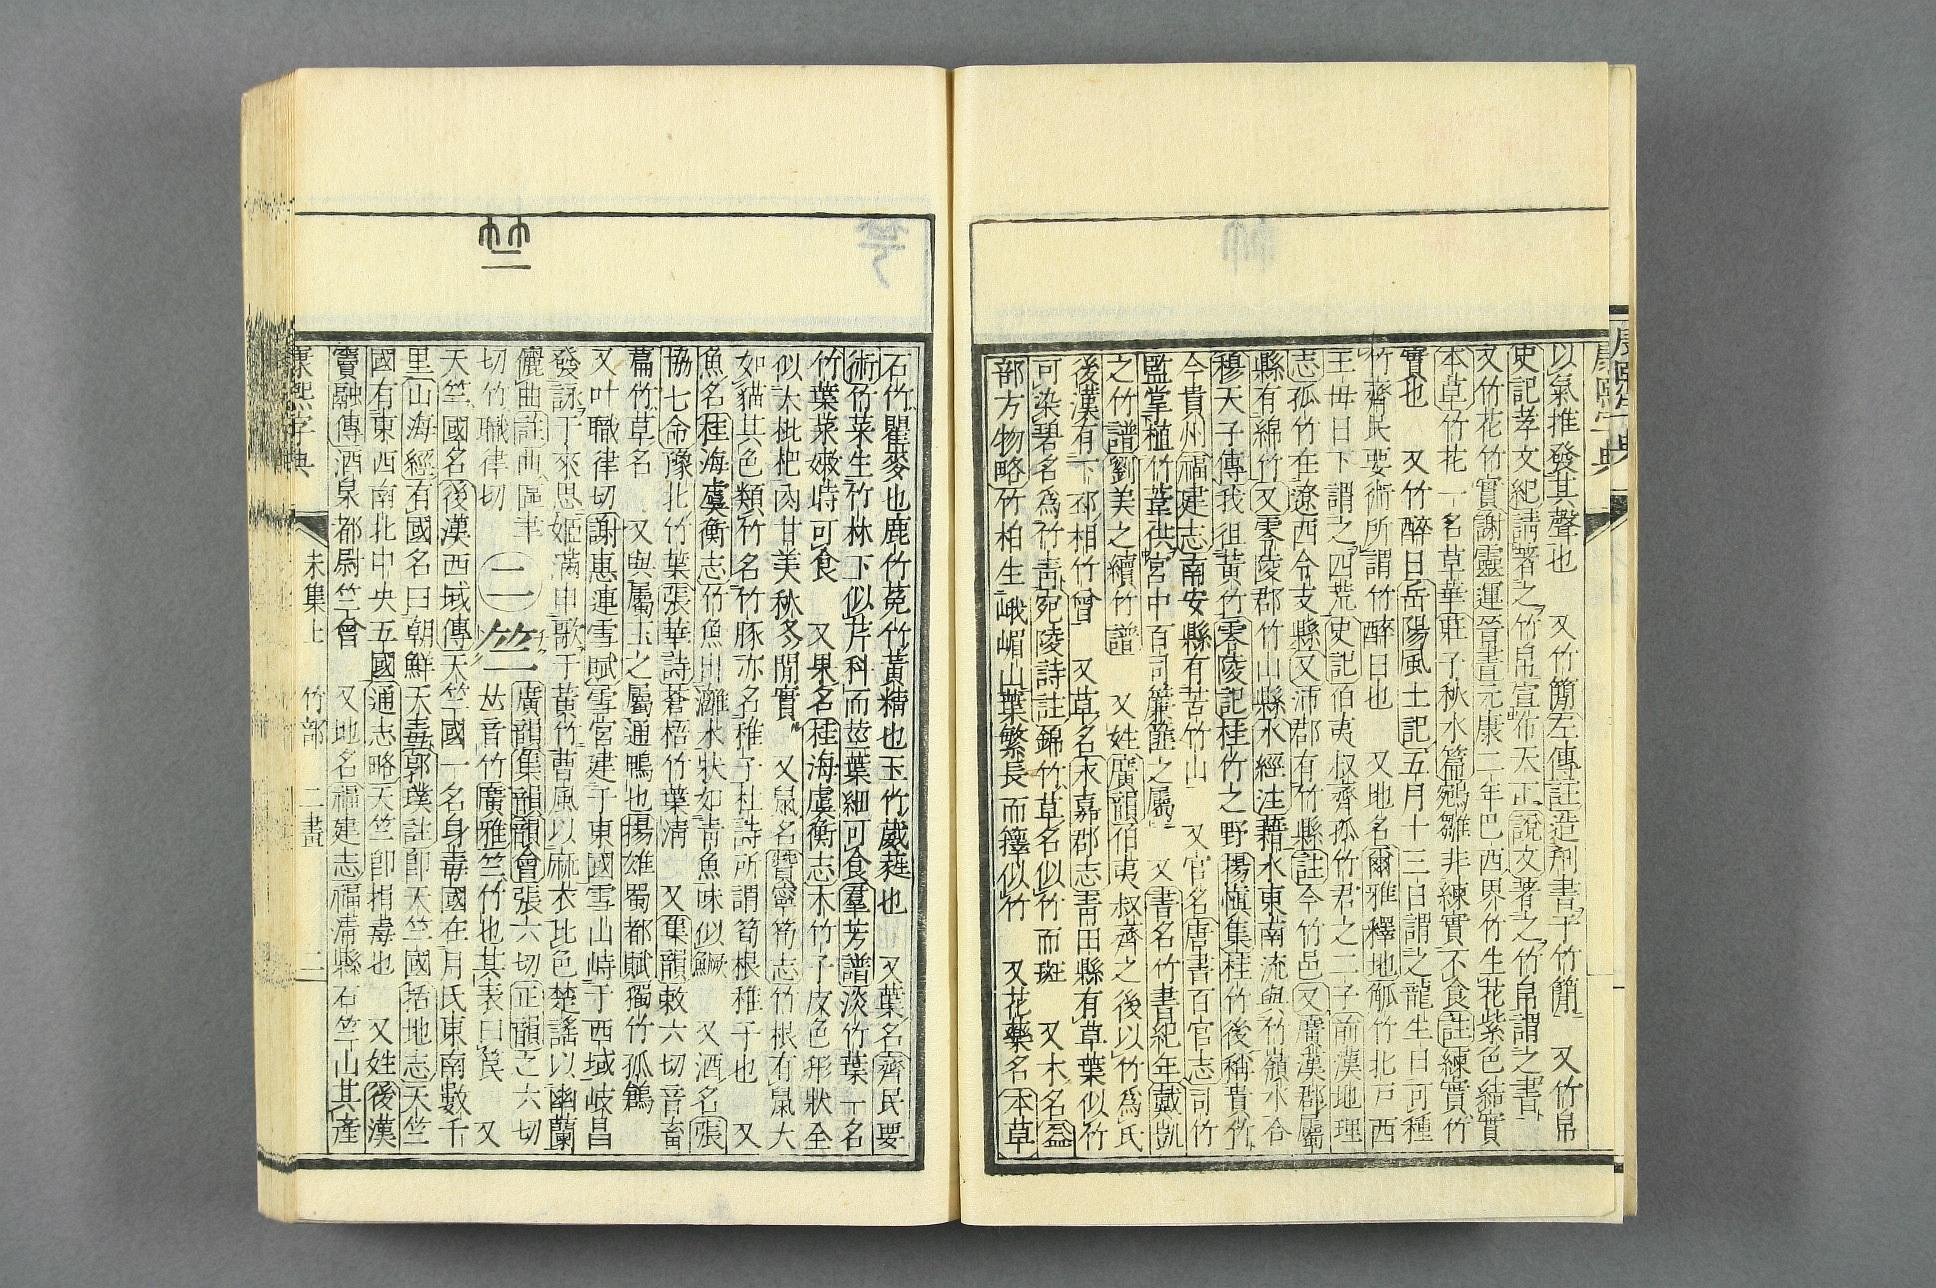 康熙字典
以氣推發其聲也　又竹簡左傳註造刑書于竹簡　又竹帛
史記孝文紀請著之竹帛宣布天下說文著之竹帛謂之書
又竹花竹實謝靈運晉書元康二年巴西界竹生花紫色結實
本草竹花一名草華莊子秋水篇鵷鶵非練實不食註練實竹
實也　又竹醉日岳陽風土記五月十三日謂之龍生日可種
竹齊民要術所謂竹醉日也　又地名爾雅釋地觚竹北戸西
王毋日下謂之四荒史記伯夷叔齊孤竹君之二子前漢地理
志孤竹在遼西令支縣又沛郡有竹縣註今竹邑又廣漢郡屬
縣有綿竹又零陵郡竹山縣水經注藉水東南流與竹嶺水合
穆天子傳我徂黃竹零陵記桂竹之野揚愼集桂竹後稱貴竹
今貴州福建志南安縣有苦竹山　又官名唐書百官志司竹
監掌植竹葦供宮中百司簾篚之屬　又書名竹書紀年戴凱
之竹譜劉美之續竹譜　又姓廣韻伯夷叔齊之後以竹爲氏
後漢有下邳相竹曾　又草名永嘉郡志靑田縣有草葉似竹
可染碧名爲竹靑宛陵詩註錦竹草名似竹而斑　又木名益
部方物略竹柏生峨嵋山葉繁長而籜似竹　又花藥名本草
石竹瞿麥也鹿竹菟竹黃精也玉竹葳蕤也　又葉名齊民要
術竹菜生竹林下似芹科而莖葉細可食羣芳譜淡竹葉一名
竹葉菜嫩時可食　又果名桂海虞衡志木竹子皮色形狀全
似大枇杷肉甘美秋冬閒實　又鼠名贊寧筍志竹根有鼠大
如貓其色類竹名竹豚亦名稚子杜詩所謂筍根稚子也　又
魚名桂海虞衡志竹魚出灕水狀如靑魚味似鱖　又酒名張
協七命豫北竹葉張華詩蒼梧竹葉淸　又集韻敕六切音畜
萹竹草名　又與屬玉之屬通鴨也揚雄蜀都賦獨竹孤鶬
又叶職律切謝惠連雪賦雪宮建于東國雪山峙于西域岐昌
發詠于來思姬滿申歌于黃竹曹風以麻衣比色楚謠以幽蘭
儷曲註曲區聿
切竹職律切　二　竺　廣韻集韻韻會張六切正韻之六切
𠀤音竹廣雅竺竹也其表曰笢　又
天竺國名後漢西域傳天竺國一名身毒國在月氏東南數千
里山海經有國名曰朝鮮天毒郭璞註卽天竺國括地志天竺
國有東西南北中央五國通志略天竺卽捐毒也　又姓後漢
竇融傳酒泉都尉竺曾　又地名福建志福淸縣石竺山其產
康熙字典　未集上　竹部　二畫　二